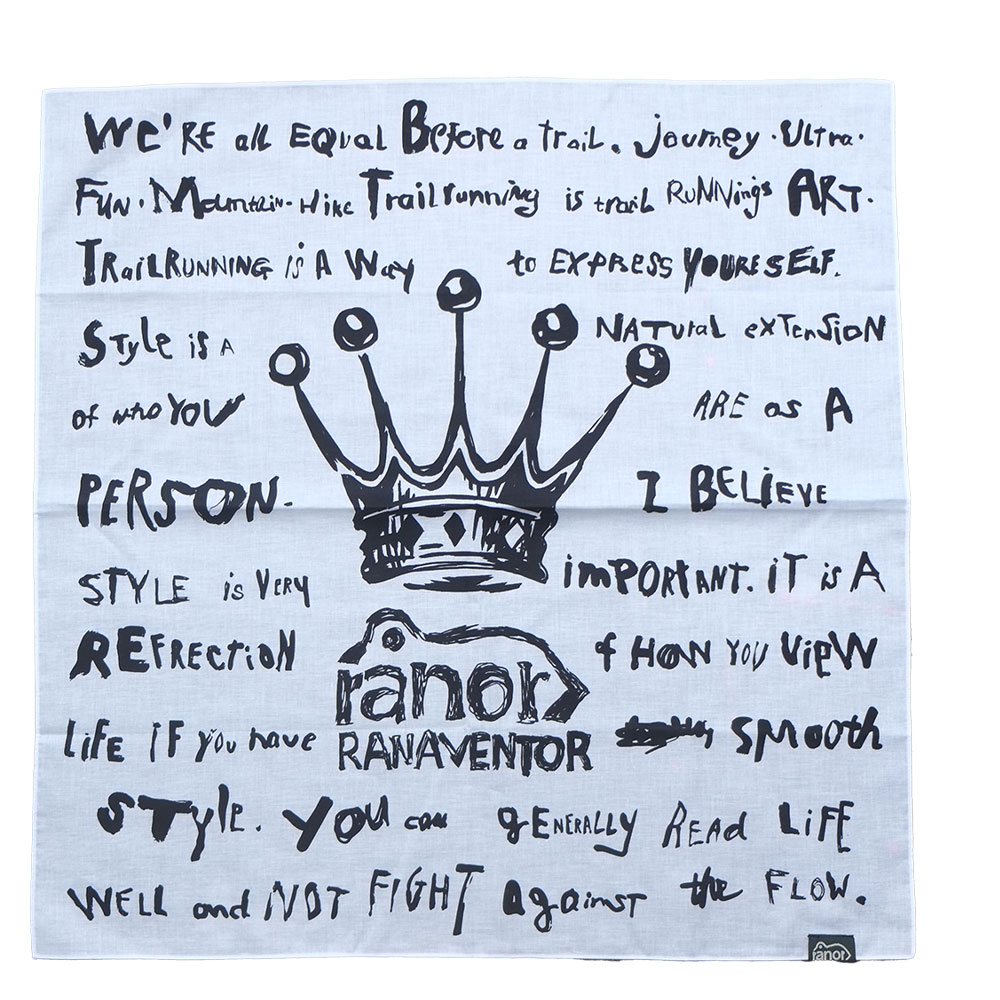 WE'RE all EQUal Before a trail. Journey · Ultra ·
FUN · Mountain · Hike Trailrunning is trail RUNNings ART.
TRailRUNNING is A Way to EXPRESS YOURESELF.
STyle is A NATUral exTenSION
of who YOU ARE as A
PERSON. I BELIEVE
STYLE is VERy imPORTANT. iT is A
REFRECTION f HOW YOU VieW
rånor
LIFE IF you have smooth
RANAVENTOR
STyle. YOU can gENERALLY READ LiFE
WELL and NOT FIGHT AgainST the FLOW.
rånor